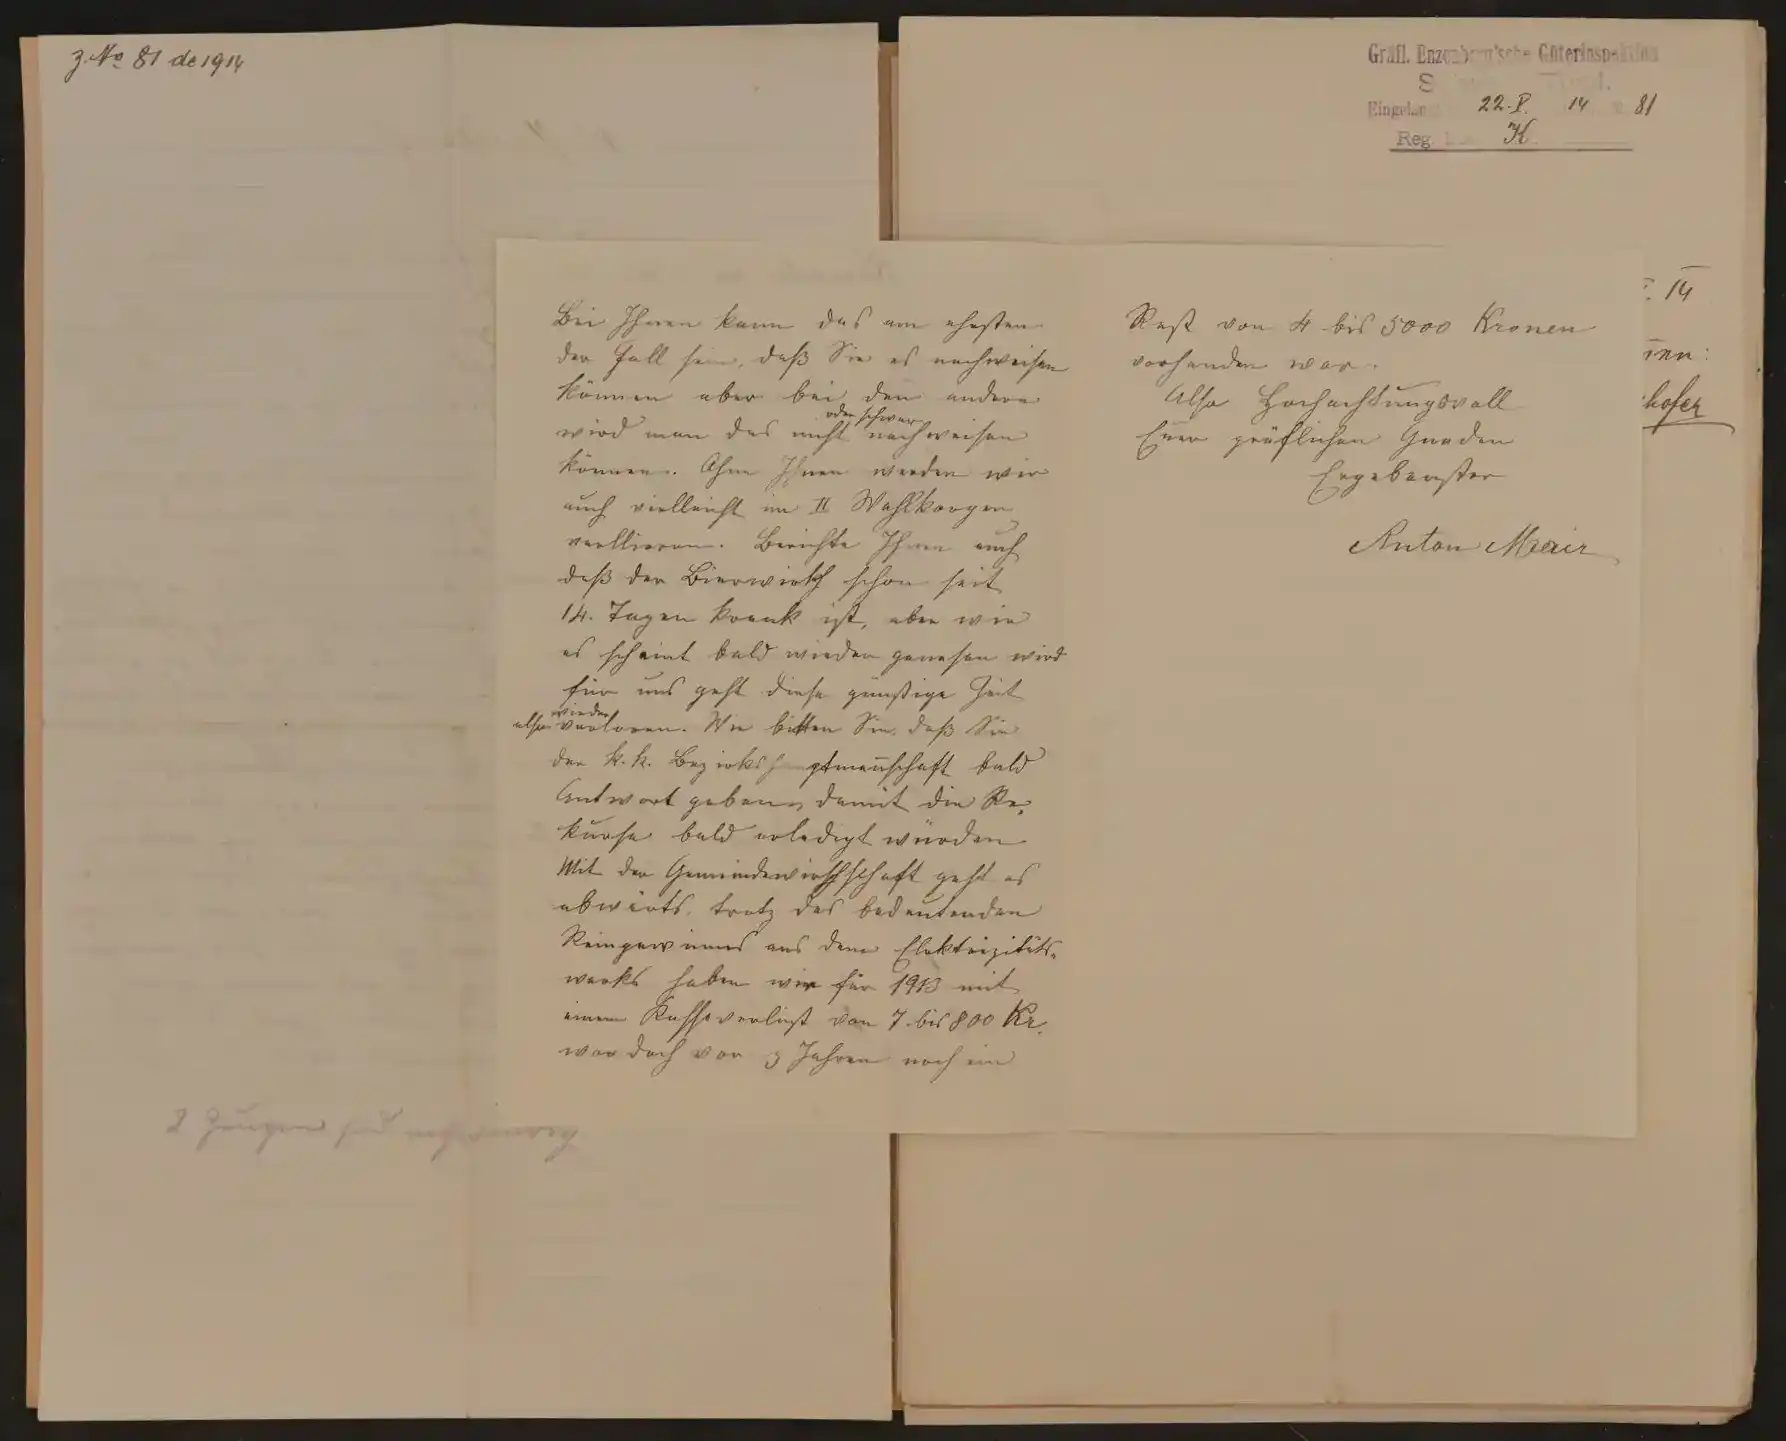 z. No 81 de 1914
Gräfl. Enzenberg'sche Güterinspektion
Eingelangt 22. V. 14 81
Reg. K.
14
hofer
Bei Ihnen kann das am ehesten
der Fall sein, daß Sie es nachweisen
können aber bei den andern
wird man das nicht oder schwer nachweisen
können. Ohne Ihnen werden wir
auch vielleicht im II Wahlkorper
verllieren. Berichte Ihnen auch
daß der Bierwirth schon seit
14. Tagen krank ist, aber wie
es scheint bald wieder genesen wird
für uns geht diese günstige Zeit
also wieder verloren. Wir bitten Sie, daß Sie
der k. k. Bezirkshauptmannschaft bald
Antwort geben, damit die Re-
kurse bald erledigt würden
Mit der Gemeindewirthschaft geht es
abwärts, trotz des bedeutenden
Reingewinnes aus dem Elektrizitäts-
werks haben wir für 1913 mit
einem Kassaverlust von 7 bis 800 Kr.
war doch vor 3 Jahren noch ein
Rest von 4 bis 5000 Kronen
vorhanden war.
Also Hochachtungsvoll
Euer gräflichen Gnaden
Ergebenster
Anton Mair
2 Zeugen sind nothwendig